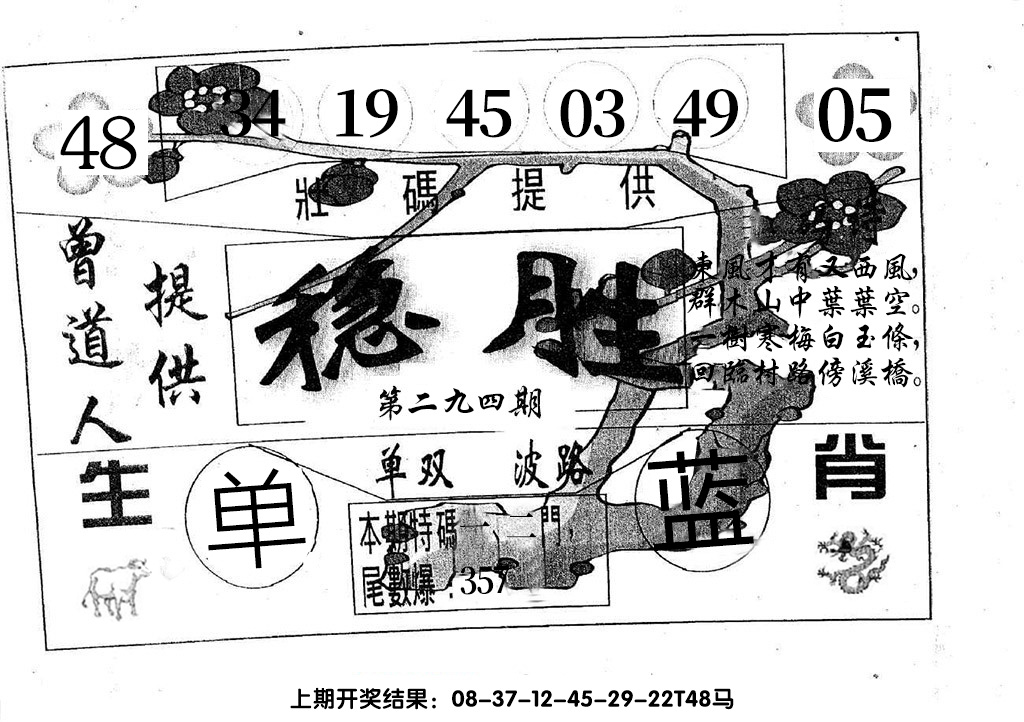 48 34 19 45 03 49 05
壯碼提供
曾道人
提供
特
稳胜
第二九四期
東風才有又西風，
群木山中葉葉空。
一樹寒梅白玉條，
回臨村路傍溪橋。
单双 波路
生 单 蓝 肖
本期特碼一、二門，
尾數爆：357
上期开奖结果：08-37-12-45-29-22T48马